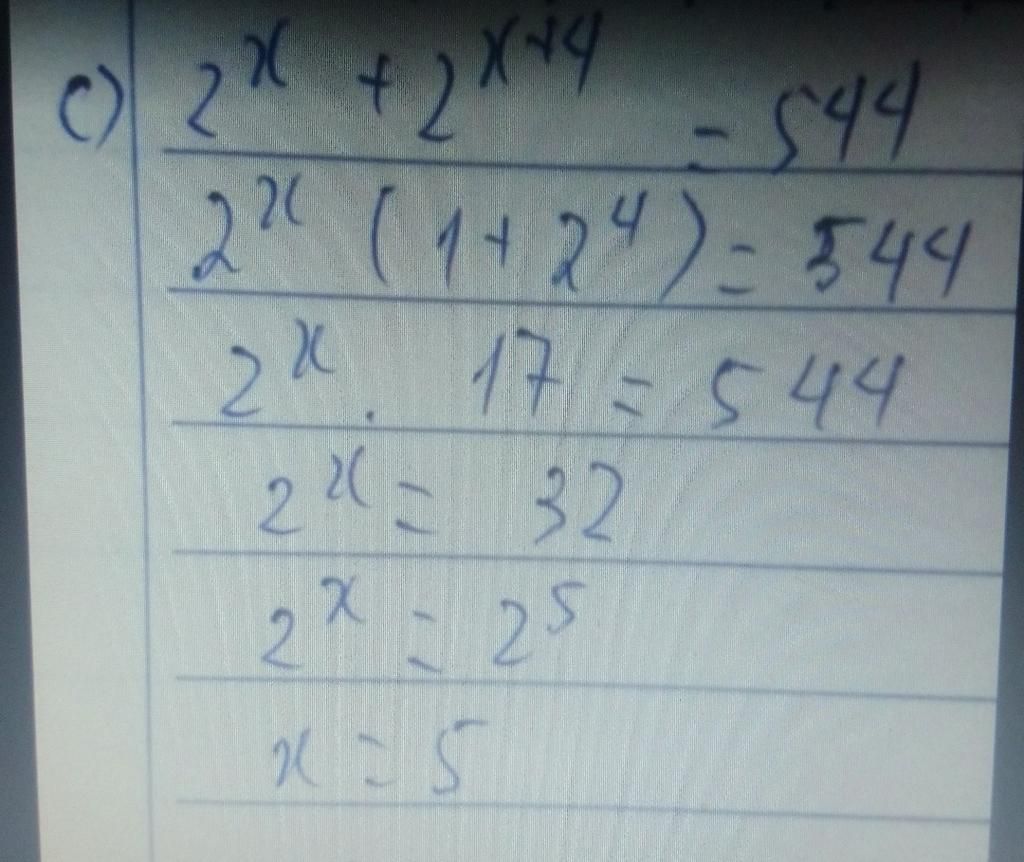 c) 2^x + 2^{x+4} = 544
2^x (1 + 2^4) = 544
2^x . 17 = 544
2^x = 32
2^x = 2^5
x = 5